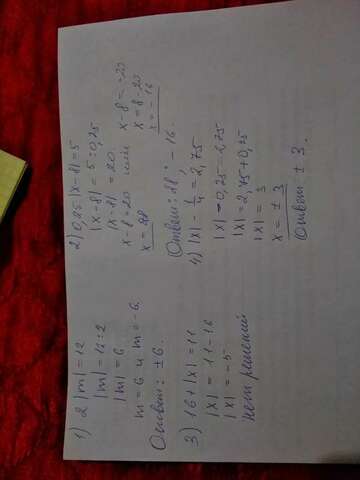 1) 2|m| = 12
|m| = 12 : 2
|m| = 6
m = 6 и m = -6.
Ответ: ±6.
2) 0,25|x-8| = 5
|x-8| = 5 : 0,25
|x-8| = 20.
x-8=20 или x-8=-20
x = 28 x = 8-20
x = -16
Ответ: 28; -16.
3) 16+|x| = 11
|x| = 11-16
|x| = -5
нет решений
4) |x| - 1/4 = 2,75
|x| - 0,25 = 2,75
|x| = 2,75+0,25
|x| = 3
x = ±3
Ответ: ±3.